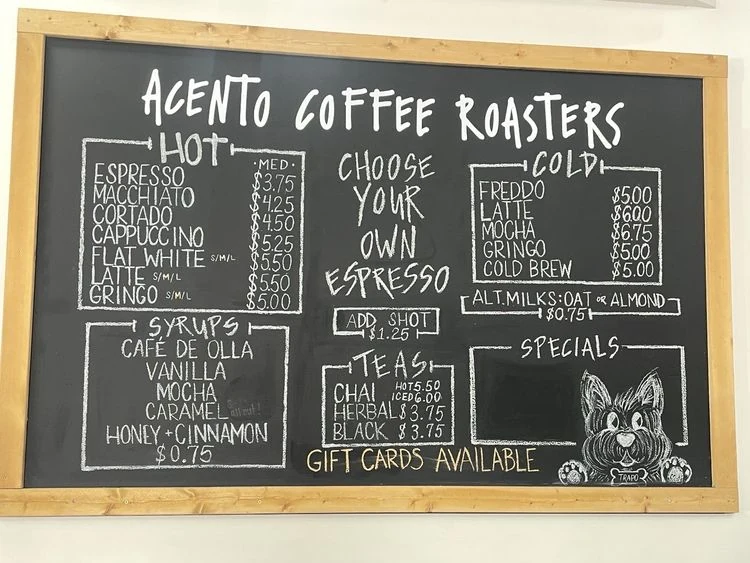 ACENTO COFFEE ROASTERS
HOT
·MED·
ESPRESSO $3.75
MACCHIATO $4.25
CORTADO $4.50
CAPPUCCINO $5.25
FLAT WHITE S/M/L $5.50
LATTE S/M/L $5.50
GRINGO S/M/L $5.00
SYRUPS
CAFÉ DE OLLA
VANILLA
MOCHA
CARAMEL
HONEY + CINNAMON
$0.75
CHOOSE
YOUR
OWN
ESPRESSO
ADD SHOT
$1.25
TEAS
CHAI HOT 5.50
ICED 6.00
HERBAL $3.75
BLACK $3.75
COLD
FREDDO $5.00
LATTE $6.00
MOCHA $6.75
GRINGO $5.00
COLD BREW $5.00
ALT. MILKS: OAT OR ALMOND
$0.75
SPECIALS
TRAPO
GIFT CARDS AVAILABLE